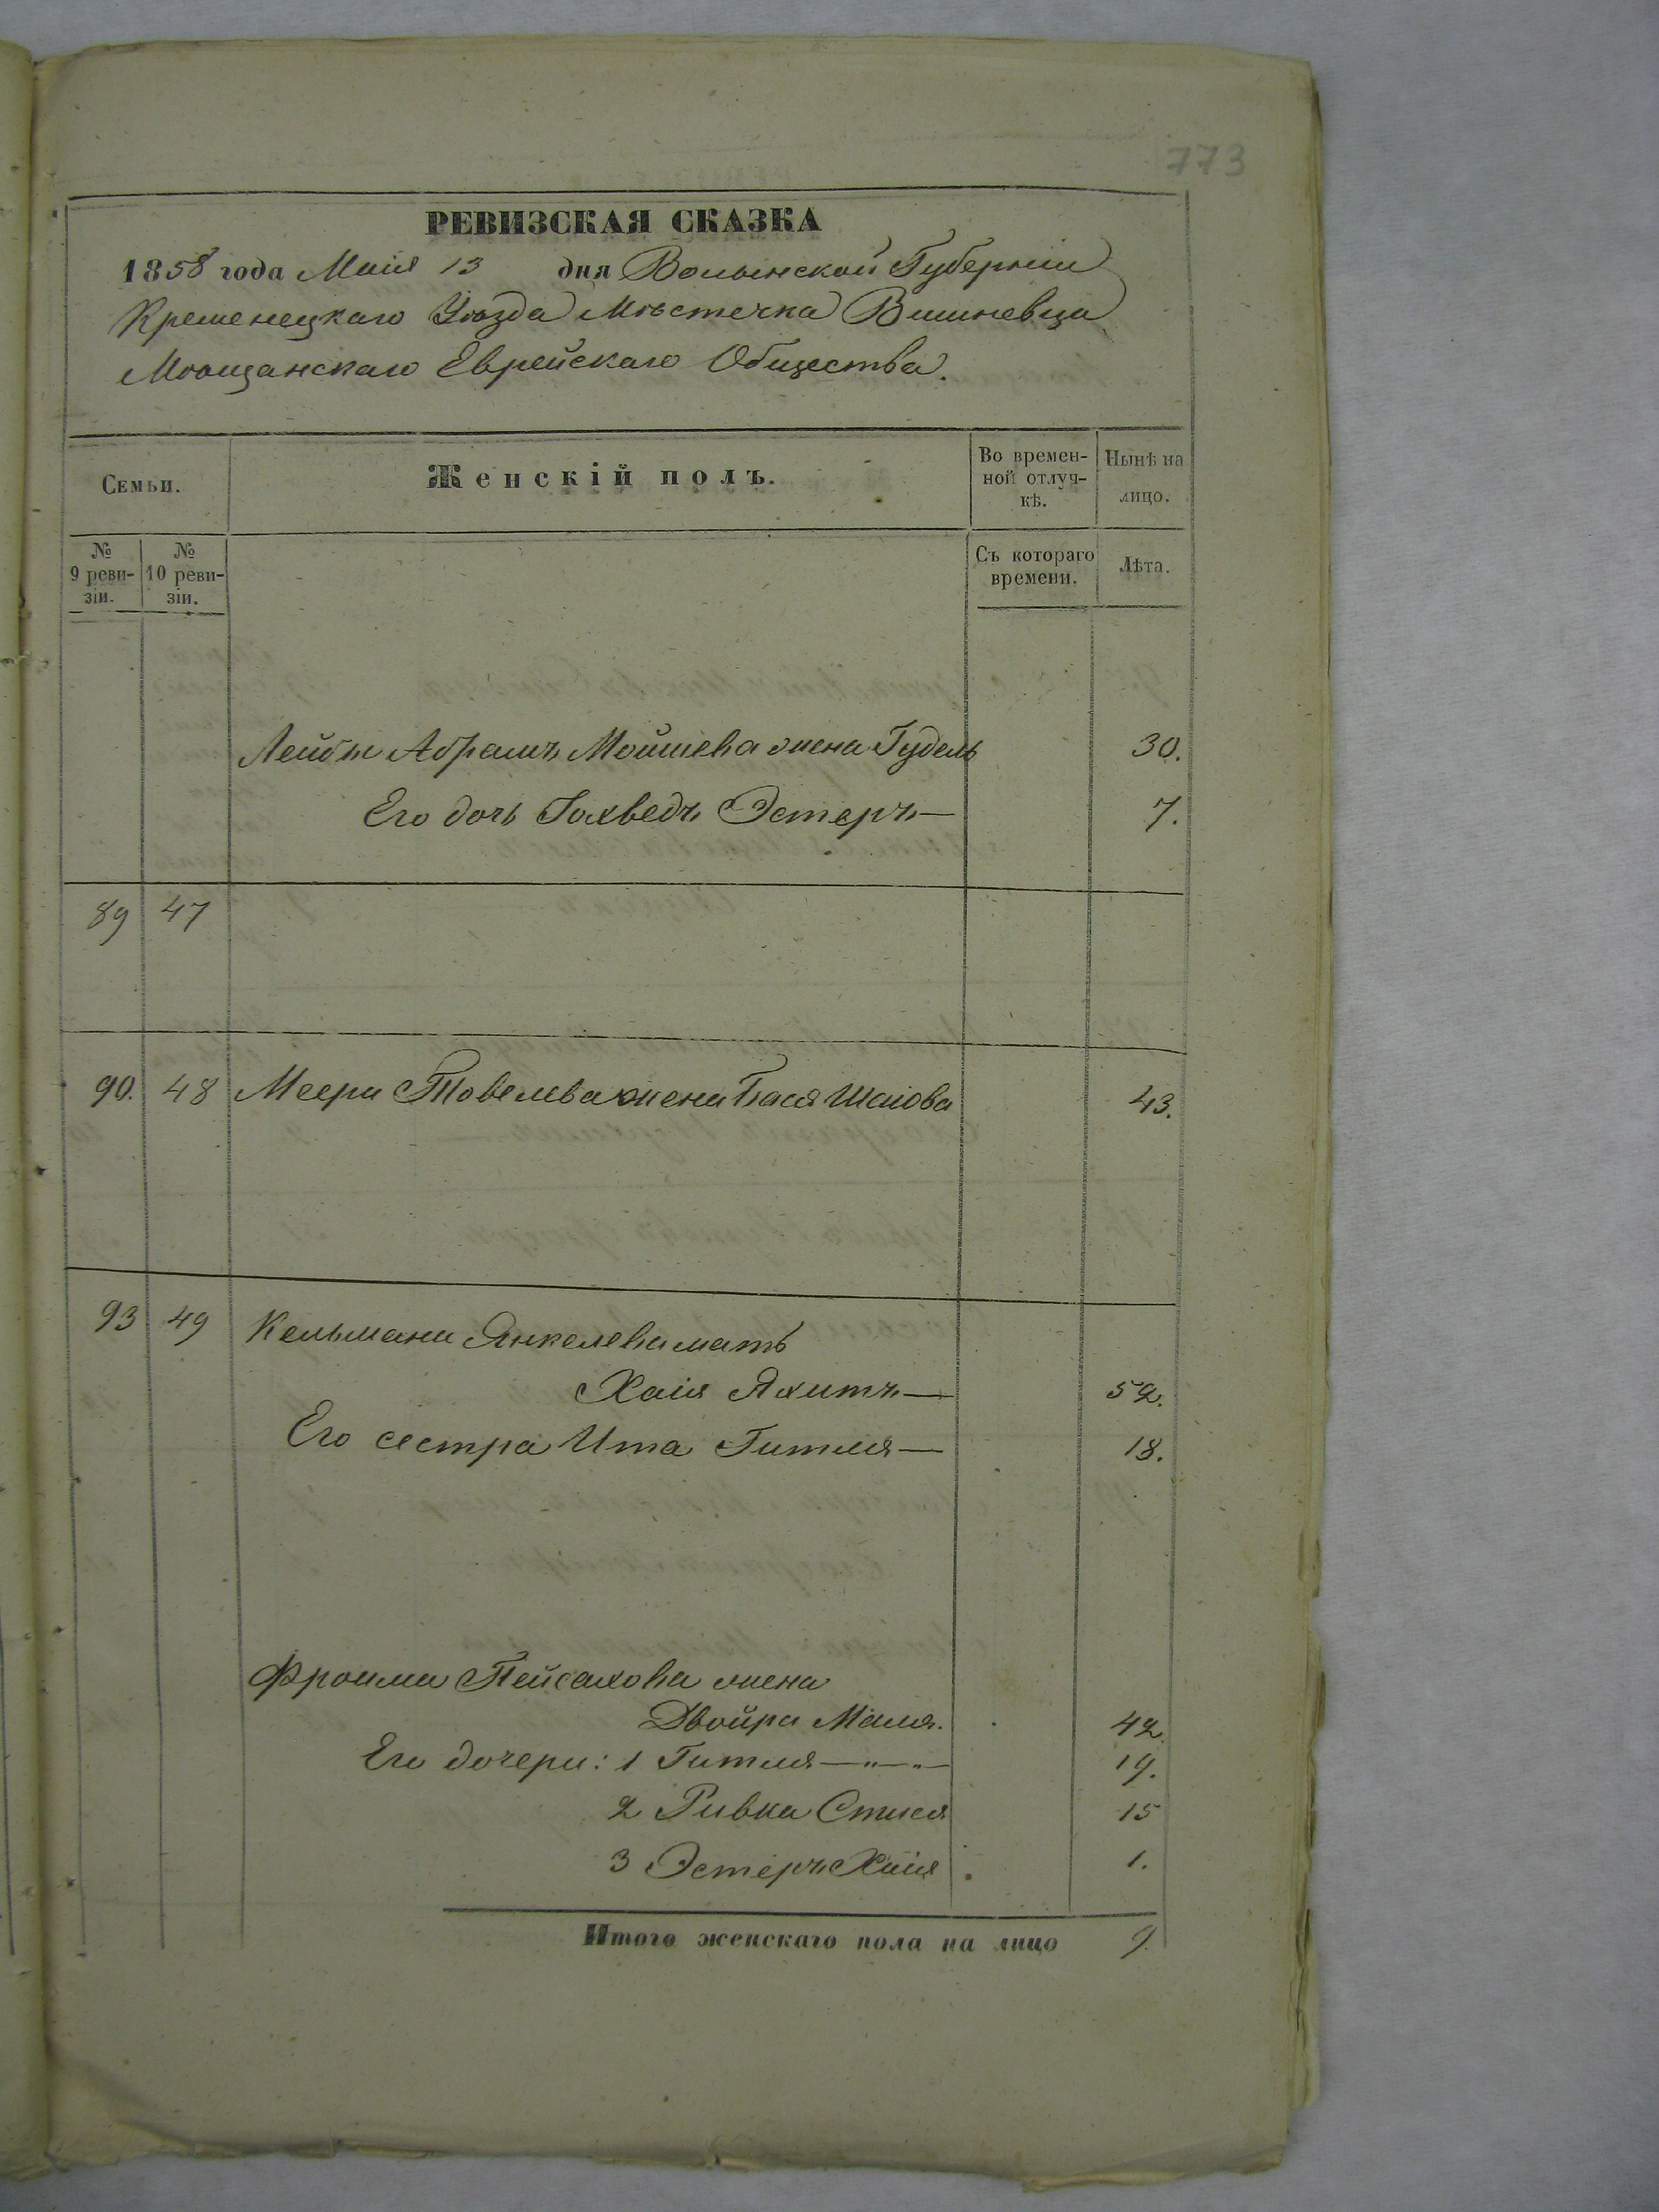 773
РЕВИЗСКАЯ СКАЗКА
1858 года Маія 13 дня Волынской Губерніи
Кременецкаго Уѣзда Мѣстечка Вишневца
Мѣщанскаго Еврейскаго Общества.
Семьи.
Женскій полъ.
Во времен-
ной отлуч-
кѣ.
Нынѣ на
лицо.
№
9 реви-
зіи.
№
10 реви-
зіи.
Съ котораго
времени.
Лѣта.
Лейбы Абрамъ Мойшева жена Гудель 30.
Его дочь Іохведъ Эстеръ— 7.
89 47
90. 48 Меера Товелева жена Бася Шаіова 43.
93 49 Кельмана Янкелева мать
Хаія Яхитъ— 52.
Его сестра Ита Гитля— 18.
Фроима Пейсахова жена
Двойра Маля. 42.
Его дочери: 1 Гитля—"—"— 19.
2 Ривка Стися 15
3 Эстеръ Хаія 1.
Итого женскаго пола на лицо 9.